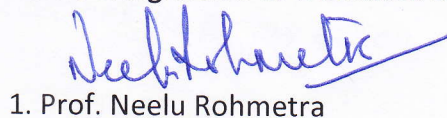 Neelu Rohmetra
1. Prof. Neelu Rohmetra